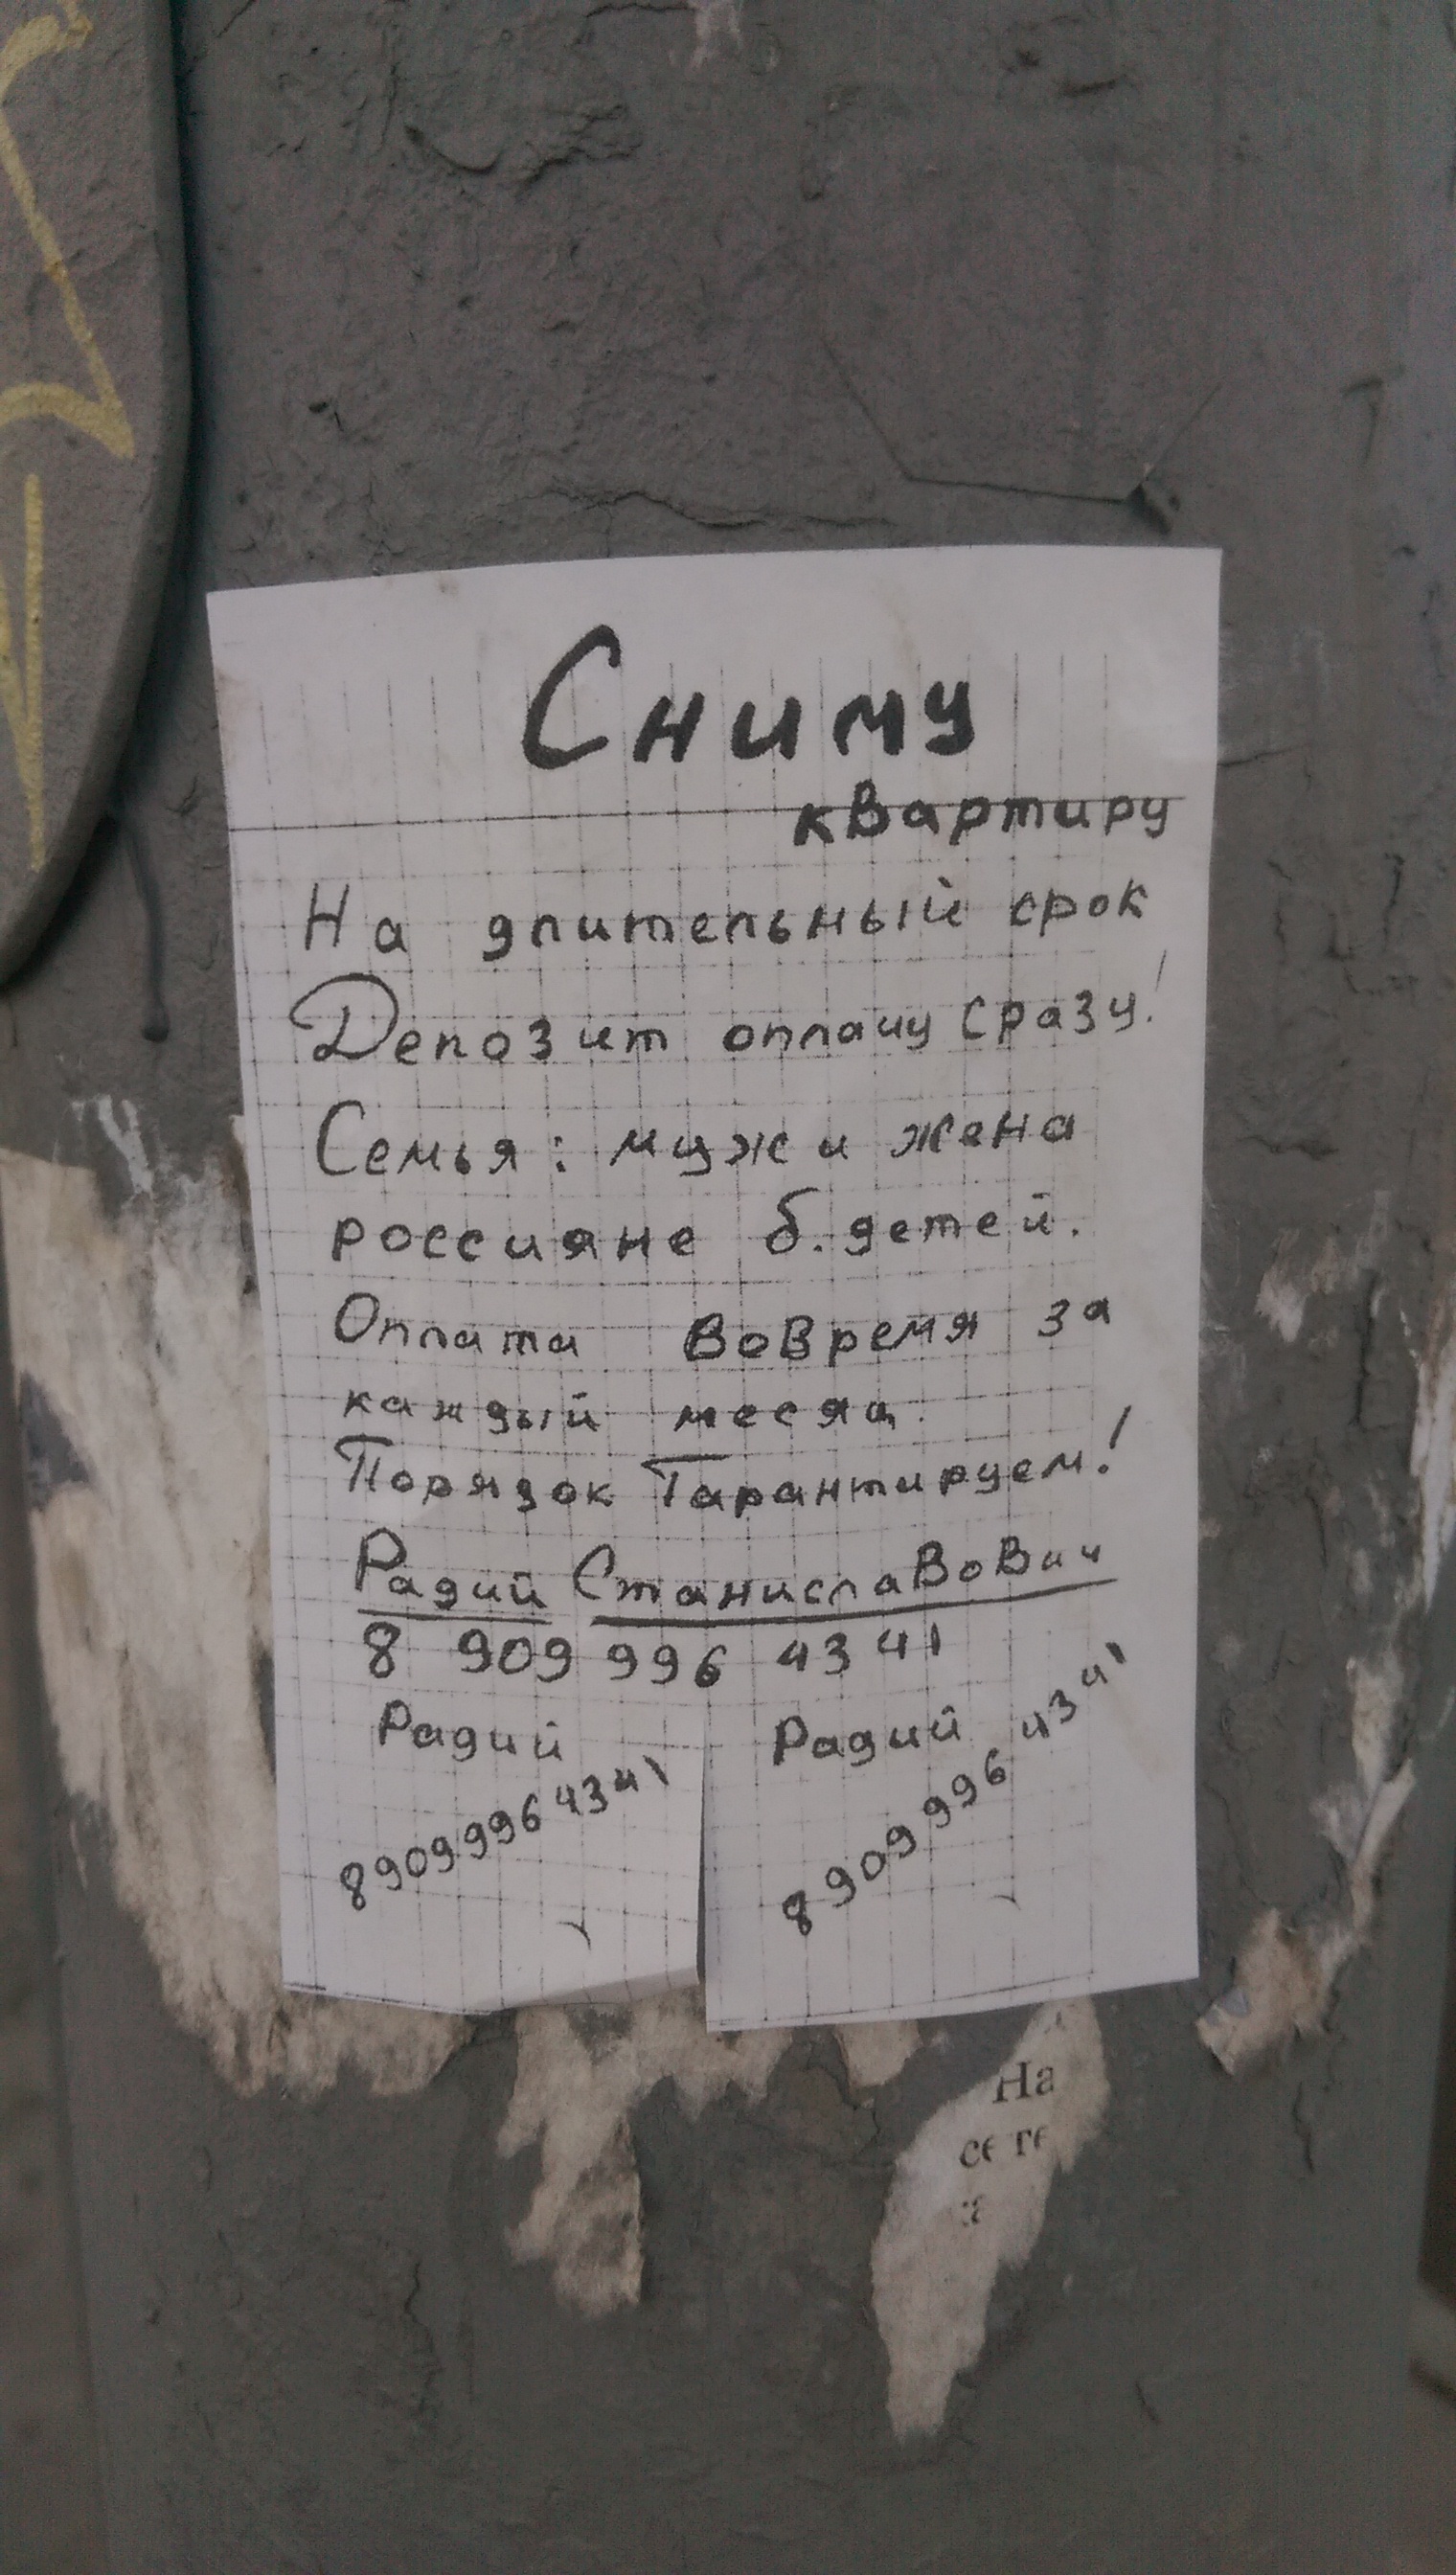 Сниму
квартиру
На длительный срок
Депозит оплачу сразу!
Семья: муж и жена
россияне б. детей.
Оплата вовремя за
каждый месяц.
Порядок Гарантируем!
Радий Станиславович
8 909 996 4341
Радий
8909996 4341
Радий
8909 996 4341
На